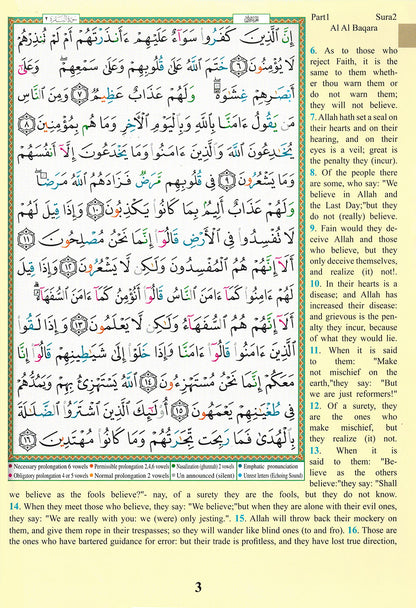 Part1 Sura2
Al Al Baqara
إِنَّ ٱلَّذِينَ كَفَرُوا۟ سَوَآءٌ عَلَيْهِمْ ءَأَنذَرْتَهُمْ أَمْ لَمْ تُنذِرْهُمْ
لَا يُؤْمِنُونَ ٦ خَتَمَ ٱللَّهُ عَلَىٰ قُلُوبِهِمْ وَعَلَىٰ سَمْعِهِمْ وَعَلَىٰٓ
أَبْصَـٰرِهِمْ غِشَـٰوَةٌ وَلَهُمْ عَذَابٌ عَظِيمٌ ٧ وَمِنَ ٱلنَّاسِ
مَن يَقُولُ ءَامَنَّا بِٱللَّهِ وَبِٱلْيَوْمِ ٱلْـَٔاخِرِ وَمَا هُم بِمُؤْمِنِينَ ٨
يُخَـٰدِعُونَ ٱللَّهَ وَٱلَّذِينَ ءَامَنُوا۟ وَمَا يَخْدَعُونَ إِلَّآ أَنفُسَهُمْ
وَمَا يَشْعُرُونَ ٩ فِى قُلُوبِهِم مَّرَضٌ فَزَادَهُمُ ٱللَّهُ مَرَضًا
وَلَهُمْ عَذَابٌ أَلِيمٌۢ بِمَا كَانُوا۟ يَكْذِبُونَ ١٠ وَإِذَا قِيلَ لَهُمْ
لَا تُفْسِدُوا۟ فِى ٱلْأَرْضِ قَالُوٓا۟ إِنَّمَا نَحْنُ مُصْلِحُونَ ١١
أَلَآ إِنَّهُمْ هُمُ ٱلْمُفْسِدُونَ وَلَـٰكِن لَّا يَشْعُرُونَ ١٢ وَإِذَا قِيلَ
لَهُمْ ءَامِنُوا۟ كَمَآ ءَامَنَ ٱلنَّاسُ قَالُوٓا۟ أَنُؤْمِنُ كَمَآ ءَامَنَ ٱلسُّفَهَآءُ
أَلَآ إِنَّهُمْ هُمُ ٱلسُّفَهَآءُ وَلَـٰكِن لَّا يَعْلَمُونَ ١٣ وَإِذَا لَقُوا۟
ٱلَّذِينَ ءَامَنُوا۟ قَالُوٓا۟ ءَامَنَّا وَإِذَا خَلَوْا۟ إِلَىٰ شَيَـٰطِينِهِمْ قَالُوٓا۟ إِنَّا
مَعَكُمْ إِنَّمَا نَحْنُ مُسْتَهْزِءُونَ ١٤ ٱللَّهُ يَسْتَهْزِئُ بِهِمْ وَيَمُدُّهُمْ
فِى طُغْيَـٰنِهِمْ يَعْمَهُونَ ١٥ أُو۟لَـٰٓئِكَ ٱلَّذِينَ ٱشْتَرَوُا۟ ٱلضَّلَـٰلَةَ
بِٱلْهُدَىٰ فَمَا رَبِحَت تِّجَـٰرَتُهُمْ وَمَا كَانُوا۟ مُهْتَدِينَ ١٦
Necessary prolongation 6 vowels Permissible prolongation 2,4,6 vowels Nasalization (ghunnah) 2 vowels Emphatic pronunciation
Obligatory prolongation 4 or 5 vowels Normal prolongation 2 vowels Un announced (silent) Unrest letters (Echoing Sound)
6. As to those who
reject Faith, it is the
same to them wheth-
er thou warn them or
do not warn them;
they will not believe.
7. Allah hath set a seal on
their hearts and on their
hearing, and on their
eyes is a veil; great is
the penalty they (incur).
8. Of the people there
are some, who say: "We
believe in Allah and
the Last Day;"but they
do not (really) believe.
9. Fain would they de-
ceive Allah and those
who believe, but they
only deceive themselves,
and realize (it) not!.
10. In their hearts is a
disease; and Allah has
increased their disease:
and grievous is the pen-
alty they incur, because
of what they would lie.
11. When it is said
to them: "Make
not mischief on the
earth,"they say: "But
we are just reformers!"
12. Of a surety, they
are the ones who
make mischief, but
they realize (it) not.
13. When it is
said to them: "Be-
lieve as the others
believe:"they say: "Shall
we believe as the fools believe?"- nay, of a surety they are the fools, but they do not know.
14. When they meet those who believe, they say: "We believe;"but when they are alone with their evil ones,
they say: "We are really with you: we (were) only jesting.". 15. Allah will throw back their mockery on
them, and give them rope in their trespasses; so they will wander like blind ones (to and fro). 16. Those are
the ones who have bartered guidance for error: but their trade is profitless, and they have lost true direction,
3